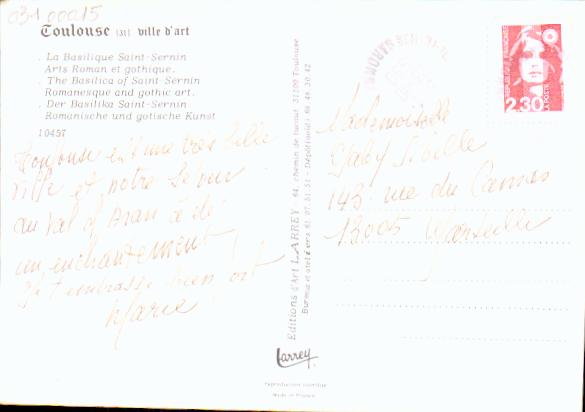 03100015
Toulouse (31) ville d'art
. La Basilique Saint-Sernin
Arts Roman et gothique.
. The Basilica of Saint-Sernin
Romanesque and gothic art.
. Der Basilika Saint-Sernin
Romanische und gotische Kunst
10457
Toulouse est une très belle
ville et notre séjour
au Val d'Aran a été
un enchantement
Je t'embrasse bien fort
Marie
Editions d'Art LARREY
Larrey
reproduction interdite
Made in France
2.30
Mademoiselle
Gaby Sibille
143 rue du Camas
13005 Marseille